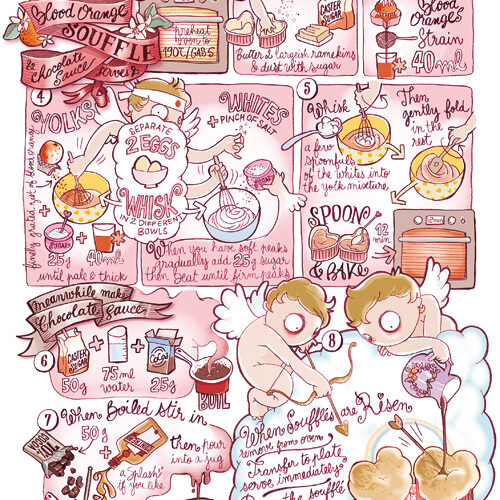 Blood Orange
SOUFFLÉ
& Chocolate Sauce
serves 2
preheat
oven to
190C/GAS 5
Butter 2 largeish ramekins
& dust with sugar
CASTER
SUGAR
Blood
Oranges
Strain
40ml
4
YOLKS
finely grated zest of blood orange
+
SUGAR
25g
+
40ml
until pale & thick
SEPARATE
2 EGGS
WHISK
IN 2 DIFFERENT
BOWLS
WHITES
+ PINCH OF SALT
SUGAR
25g
When you have soft peaks
gradually add 25g sugar
then beat until firm peaks
5
Whisk
a few
spoonfuls
of the whites into
the yolk mixture
Then
gently fold
in the
rest
SPOON
& BAKE
12
min
meanwhile make
Chocolate Sauce
6
CASTER
SUGAR
50g
+
75ml
water
+
COCOA
25g
BOIL
7
When Boiled stir in
50g
+
then pour
into a jug
a 'Splash'
if you like
8
When Soufflés are Risen
remove from oven
Transfer to plate
serve immediately
the soufflé